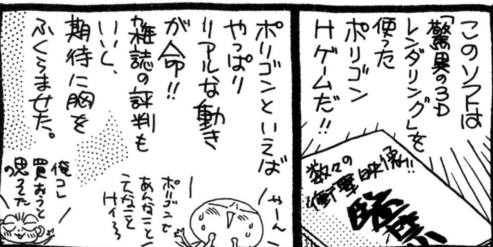 このソフトは
「驚異の3D
レンダリング」を
使った
ポリゴン
Hゲームだ!!
数々の
衝撃映像!!
ポリゴンといえば
やっぱり
リアルな動き
が命!!
雑誌の評判も
いいし、
期待に胸を
ふくらませた。
やーん
ポリゴンで
あんなこと
こんなこと
俺コレ
買おうと
思ってた